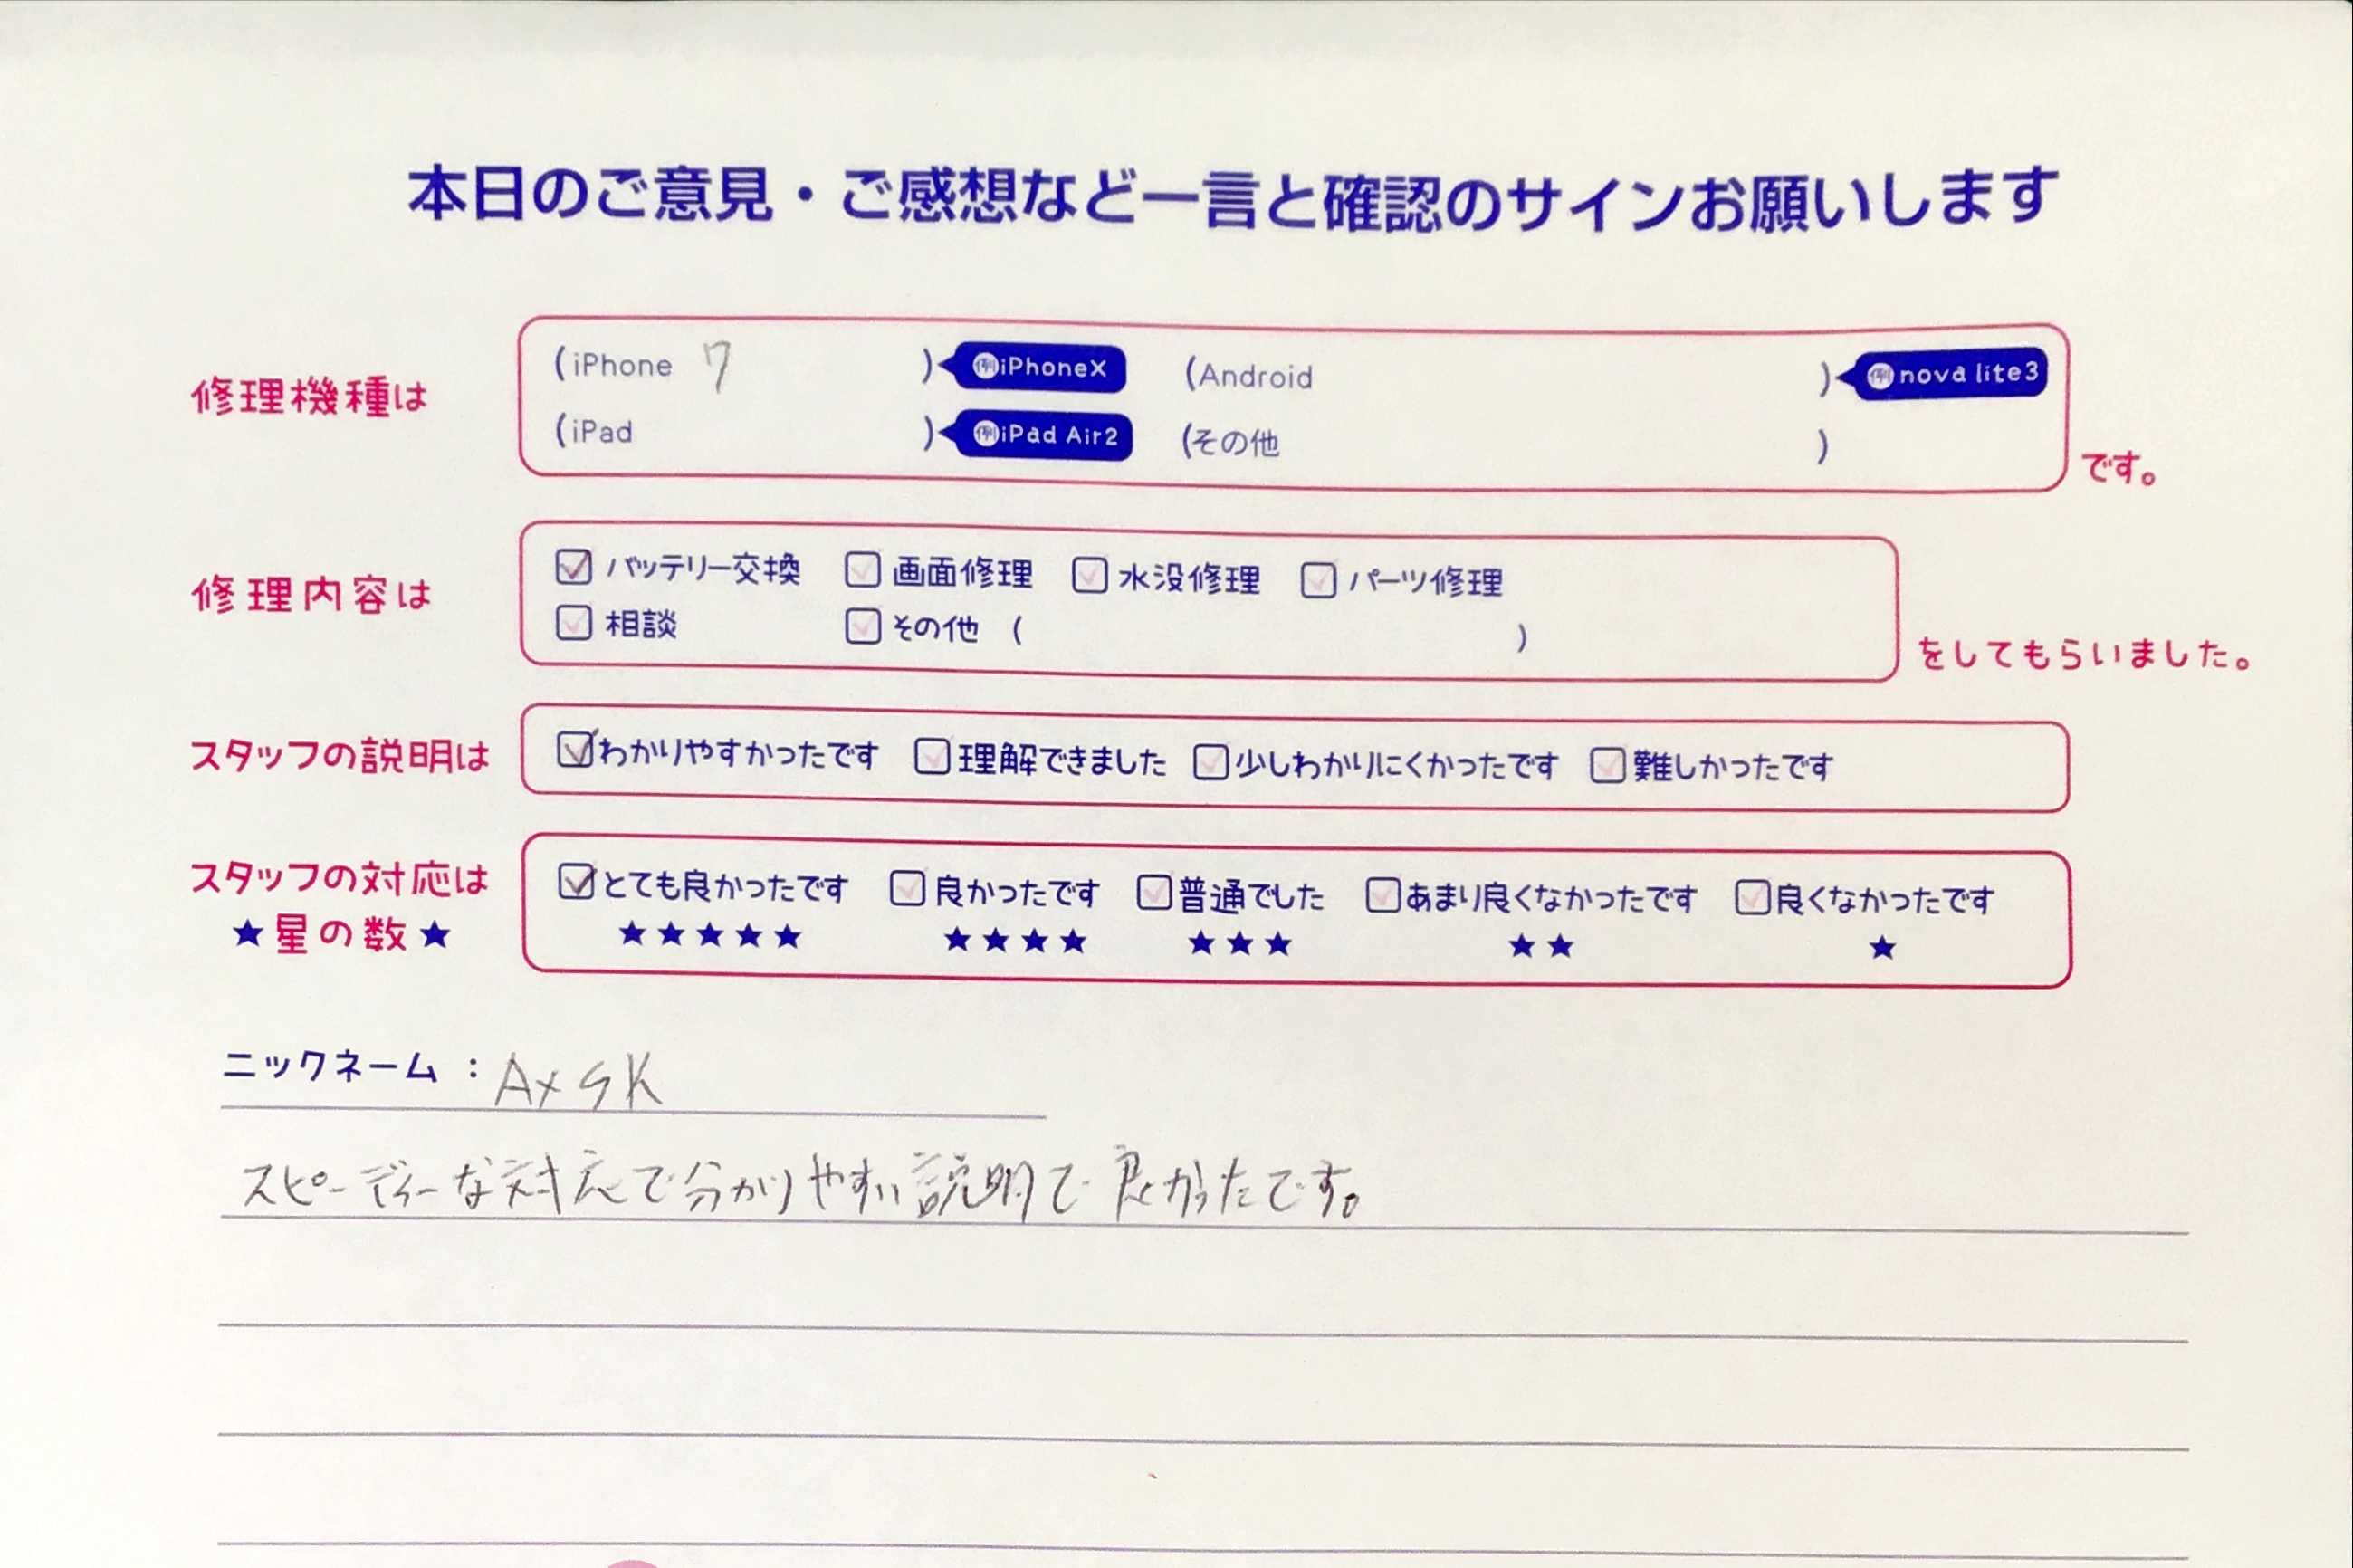 本日のご意見・ご感想など一言と確認のサインお願いします
修理機種は (iPhone 7 ) 例iPhoneX (Android ) 例nova lite3
(iPad ) 例iPad Air2 (その他 ) です。
修理内容は バッテリー交換 画面修理 水没修理 パーツ修理
相談 その他 ( ) をしてもらいました。
スタッフの説明は わかりやすかったです 理解できました 少しわかりにくかったです 難しかったです
スタッフの対応は とても良かったです 良かったです 普通でした あまり良くなかったです 良くなかったです
★星の数★ ★★★★★ ★★★★ ★★★ ★★ ★
ニックネーム :
スピーディーな対応で分かりやすい説明で良かったです。